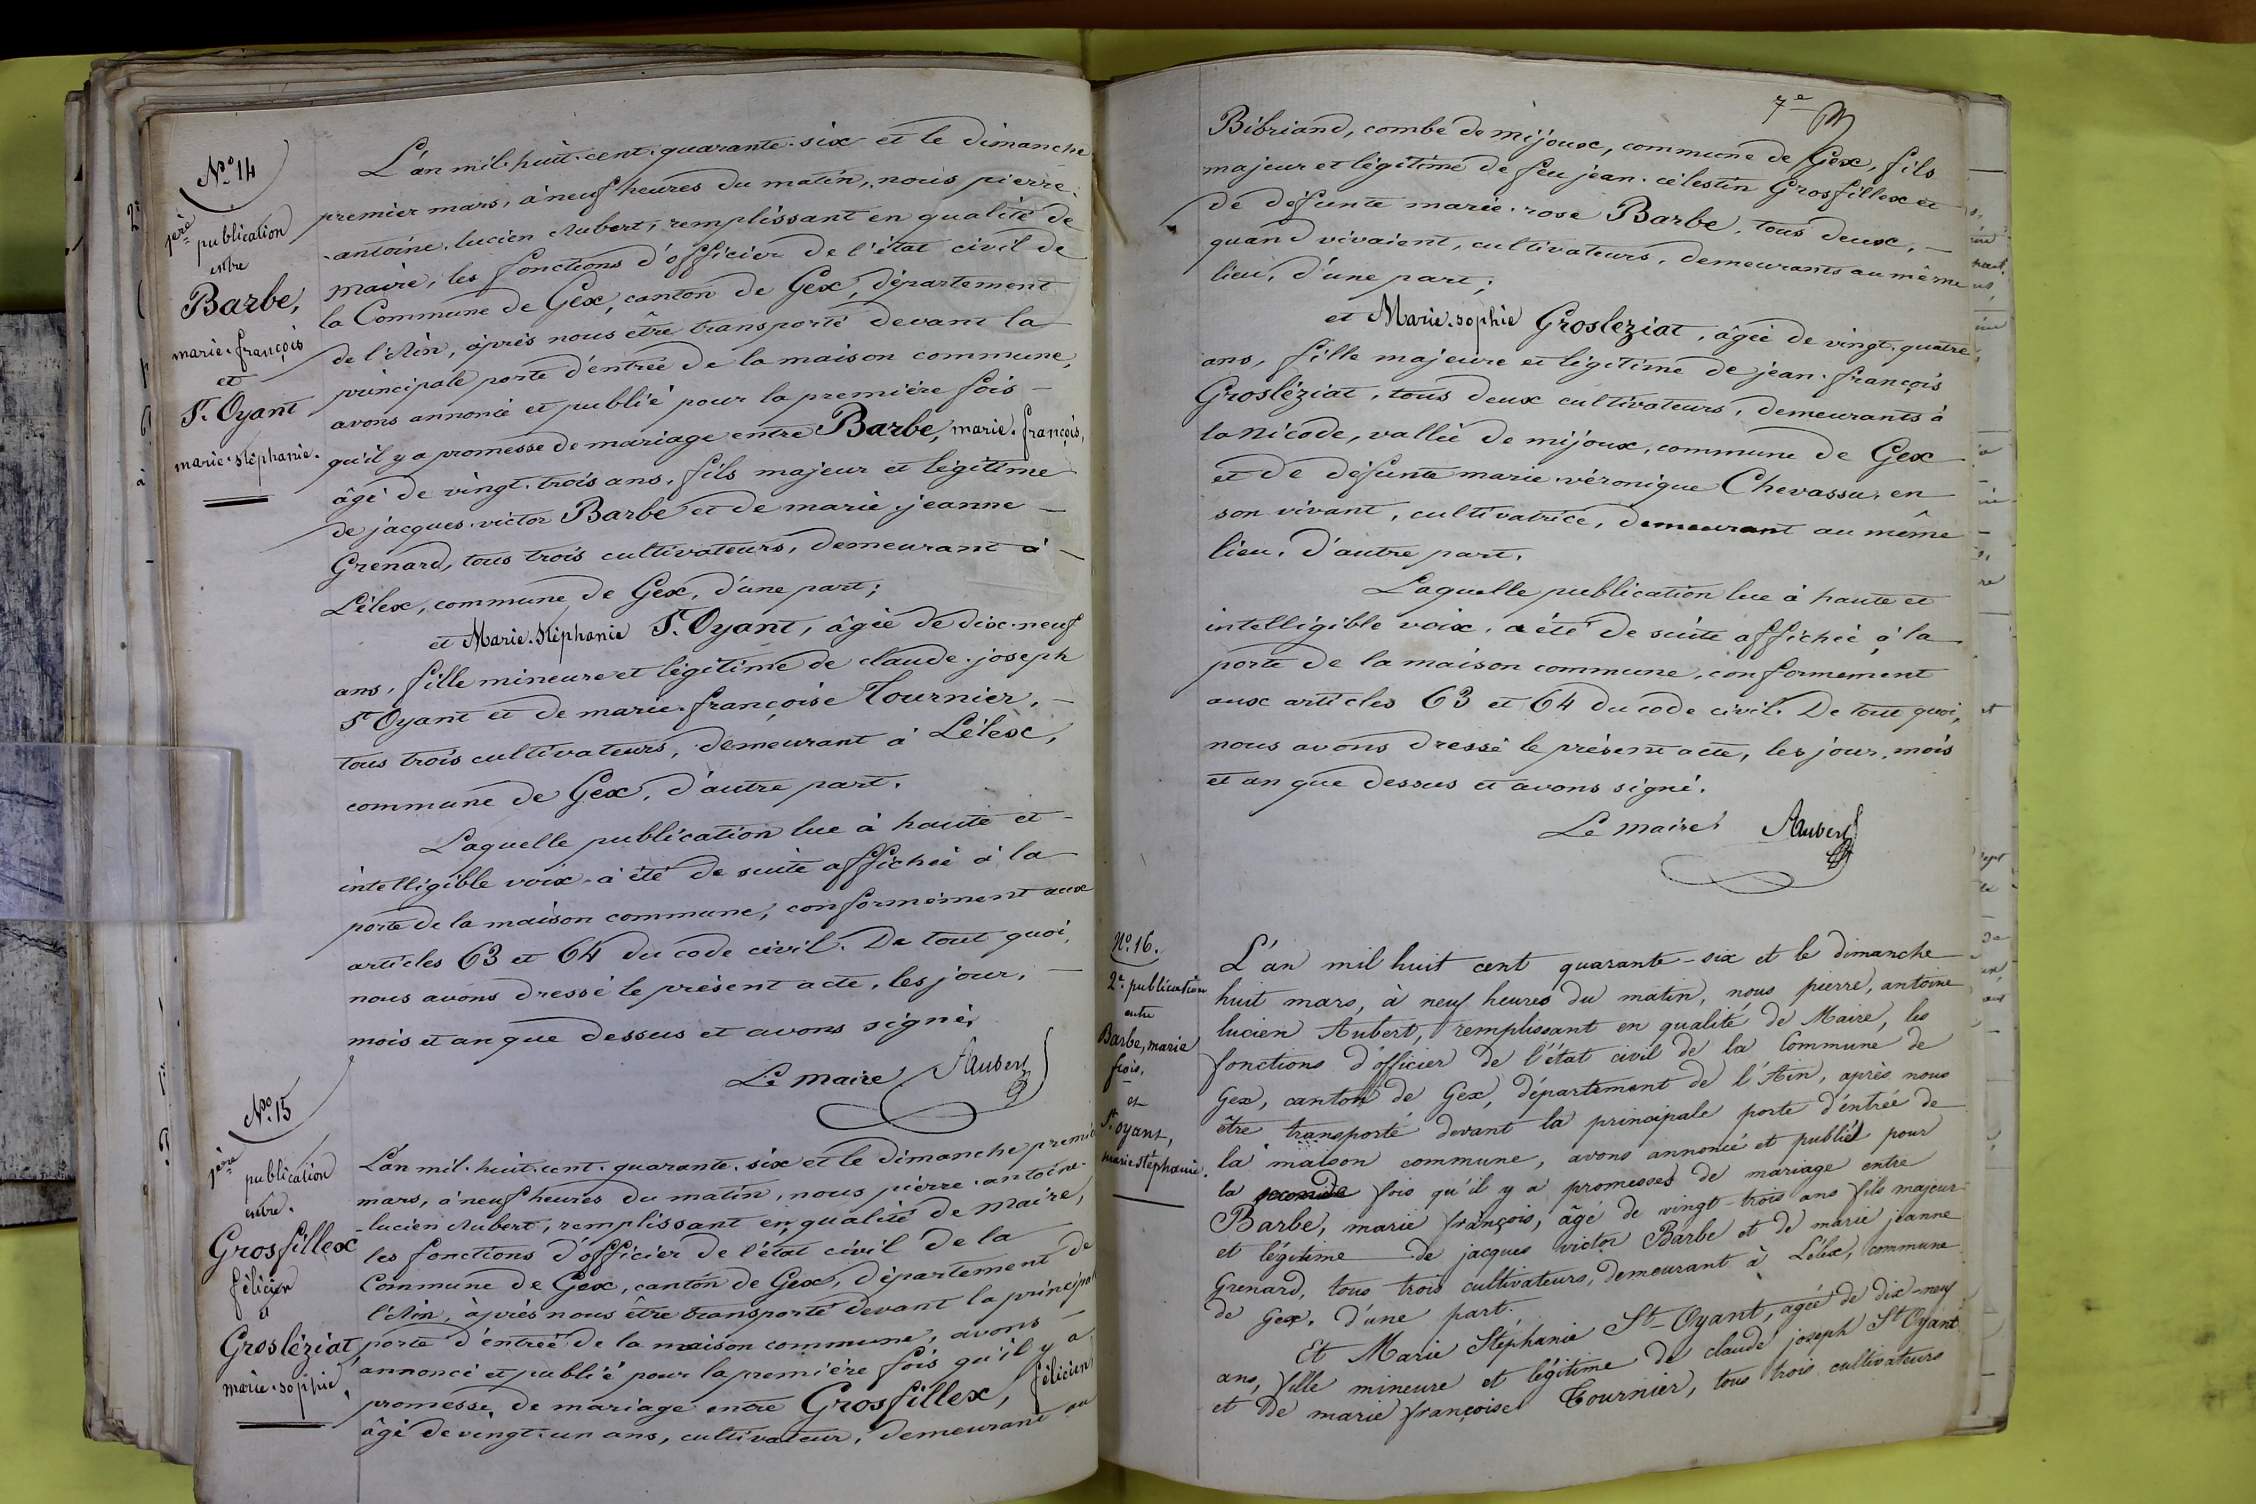 N.º 14
1ère
publication
entre
Barbe,
marie. françois
et
St. Oyant
marie. stéphanie.
L'an mil. huit. cent. quarante. six et le dimanche
premier mars, à neuf heures du matin, nous pierre.
antoine. lucien Aubert, remplissant en qualité de
maire, les fonctions d'officier de l'état civil de
la Commune de Gex, canton de Gex, département
de l'Ain, après nous être transporté devant la
principale porte d'entrée de la maison commune,
avons annoncé et publié pour la première fois –
qu'il y a promesse de mariage entre Barbe, marie. françois,
âgé de vingt. trois ans, fils majeur et légitime
de jacques. victor Barbe et de marie. jeanne –
Grenard, tous trois cultivateurs, demeurant à –
Lélex, commune de Gex, d'une part;
et Marie. Stéphanie St. Oyant, âgée de dix. neuf
ans, fille mineure et légitime de claude. joseph
St Oyant et de marie. françoise Tournier, –
tous trois cultivateurs, demeurant à Lélex,
commune de Gex, d'autre part.
Laquelle publication lue à haute et –
intelligible voix a été de suite affichée à la
porte de la maison commune, conformément aux
articles 63 et 64 du code civil. De tout quoi,
nous avons dressé le présent acte, les jour, –
mois et an que dessus et avons signé.
Le maire Aubert
N.º 15
1ère
publication
entre.
Grosfillex
félicien
et
Grosléziat,
marie. sophie,
L'an mil. huit. cent. quarante. six et le dimanche premier
mars, à neuf heures du matin, nous pierre. antoine.
lucien Aubert, remplissant en qualité de maire,
les fonctions d'officier de l'état civil de la
Commune de Gex, canton de Gex, département de
l'Ain, après nous être transporté devant la principale
porte d'entrée de la maison commune, avons –
annoncé et publié pour la première fois qu'il y a
promesse de mariage entre Grosfillex, félicien
âgé de vingt. un ans, cultivateur, demeurant au
7e
Bibriand, combe de mijoux, commune de Gex, fils
majeur et légitime de feu jean. célestin Grosfillex et
de défunte marie. rose Barbe, tous deux, –
quand vivaient, cultivateurs, demeurants au même
lieu, d'une part;
et Marie. sophie Grosleziat, âgée de vingt. quatre
ans, fille majeure et légitime de jean. françois
Grosléziat, tous deux cultivateurs, demeurants à
la nicode, vallée de mijoux, commune de Gex
et de défunte marie. véronique Chevassu, en
son vivant, cultivatrice, demeurant au même
lieu, d'autre part.
Laquelle publication lue à haute et
intelligible voix, a été de suite affichée à la
porte de la maison commune, conformement
aux articles 63 et 64 du code civil. De tout quoi,
nous avons dressé le présent acte, les jour, mois
et an que dessus et avons signé.
Le maire Aubert
N.º 16.
2e. publication
entre
Barbe, marie
frois.
et
St. oyant,
marie stéphanie.
L'an mil huit cent quarante-six et le dimanche
huit mars, à neuf heures du matin, nous pierre, antoine
lucien Aubert, remplissant en qualité de Maire, les
fonctions d'officier de l'état civil de la Commune de
Gex, canton de Gex, département de l'Ain, après nous
être transporté devant la principale porte d'entrée de
la maison commune, avons annoncé et publié pour
la seconde fois qu'il y a promesses de mariage entre
Barbe, marie françois, âgé de vingt-trois ans fils majeur
et légitime de jacques victor Barbe et de marie jeanne
Grenard, tous trois cultivateurs, demeurant à Lélex, commune
de Gex, d'une part.
Et Marie Stéphanie St-Oyant, agée de dix-neuf
ans, fille mineure et légitime de claude joseph St Oyant
et de marie françoise Tournier, tous trois cultivateurs